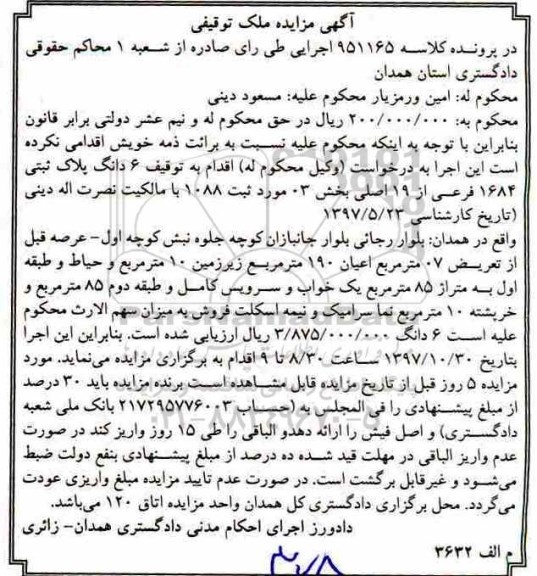 آگهی مزایده ملک توقیفی
در پرونده کلاسه ۹۵۱۱۶۵ اجرایی طی رای صادره از شعبه ۱ محاکم حقوقی
دادگستری استان همدان
محکوم له: امین ورمزیار محکوم علیه: مسعود دینی
محکوم به: ۲۰۰/۰۰۰/۰۰۰ ریال در حق محکوم له و نیم عشر دولتی برابر قانون
بنابراین با توجه به اینکه محکوم علیه نسبت به برائت ذمه خویش اقدامی نکرده
است این اجرا به درخواست (وکیل محکوم له) اقدام به توقیف ۶ دانگ پلاک ثبتی
۱۶۸۴ فرعی از ۱۹ اصلی بخش ۰۳ مورد ثبت ۱۰۸۸ با مالکیت نصرت اله دینی
(تاریخ کارشناسی ۱۳۹۷/۵/۲۳
واقع در همدان: بلوار رجائی بلوار جانبازان کوچه جلوه نبش کوچه اول- عرصه قبل
از تعریض ۰۷ مترمربع اعیان ۱۹۰ مترمربع زیرزمین ۱۰ مترمربع و حیاط و طبقه
اول به متراژ ۸۵ مترمربع یک خواب و سرویس کامل و طبقه دوم ۸۵ مترمربع و
خرپشته ۱۰ مترمربع نما سرامیک و نیمه اسکلت فروش به میزان سهم الارث محکوم
علیه است ۶ دانگ ۳/۸۷۵/۰۰۰/۰۰۰ ریال ارزیابی شده است. بنابراین این اجرا
بتاریخ ۱۳۹۷/۱۰/۳۰ ساعت ۸/۳۰ تا ۹ اقدام به برگزاری مزایده می‌نماید. مورد
مزایده ۵ روز قبل از تاریخ مزایده قابل مشاهده است برنده مزایده باید ۳۰ درصد
از مبلغ پیشنهادی را فی المجلس به (حساب ۲۱۷۲۹۵۷۷۶۰۰۳ بانک ملی شعبه
دادگستری) و اصل فیش را ارائه دهدو الباقی را طی ۱۵ روز واریز کند در صورت
عدم واریز الباقی در مهلت قید شده ده درصد از مبلغ پیشنهادی بنفع دولت ضبط
می‌شود و غیرقابل برگشت است. در صورت عدم تایید مزایده مبلغ واریزی عودت
می‌گردد. محل برگزاری دادگستری کل همدان واحد مزایده اتاق ۱۲۰ می‌باشد.
دادورز اجرای احکام مدنی دادگستری همدان- زائری
م الف ۳۶۳۲